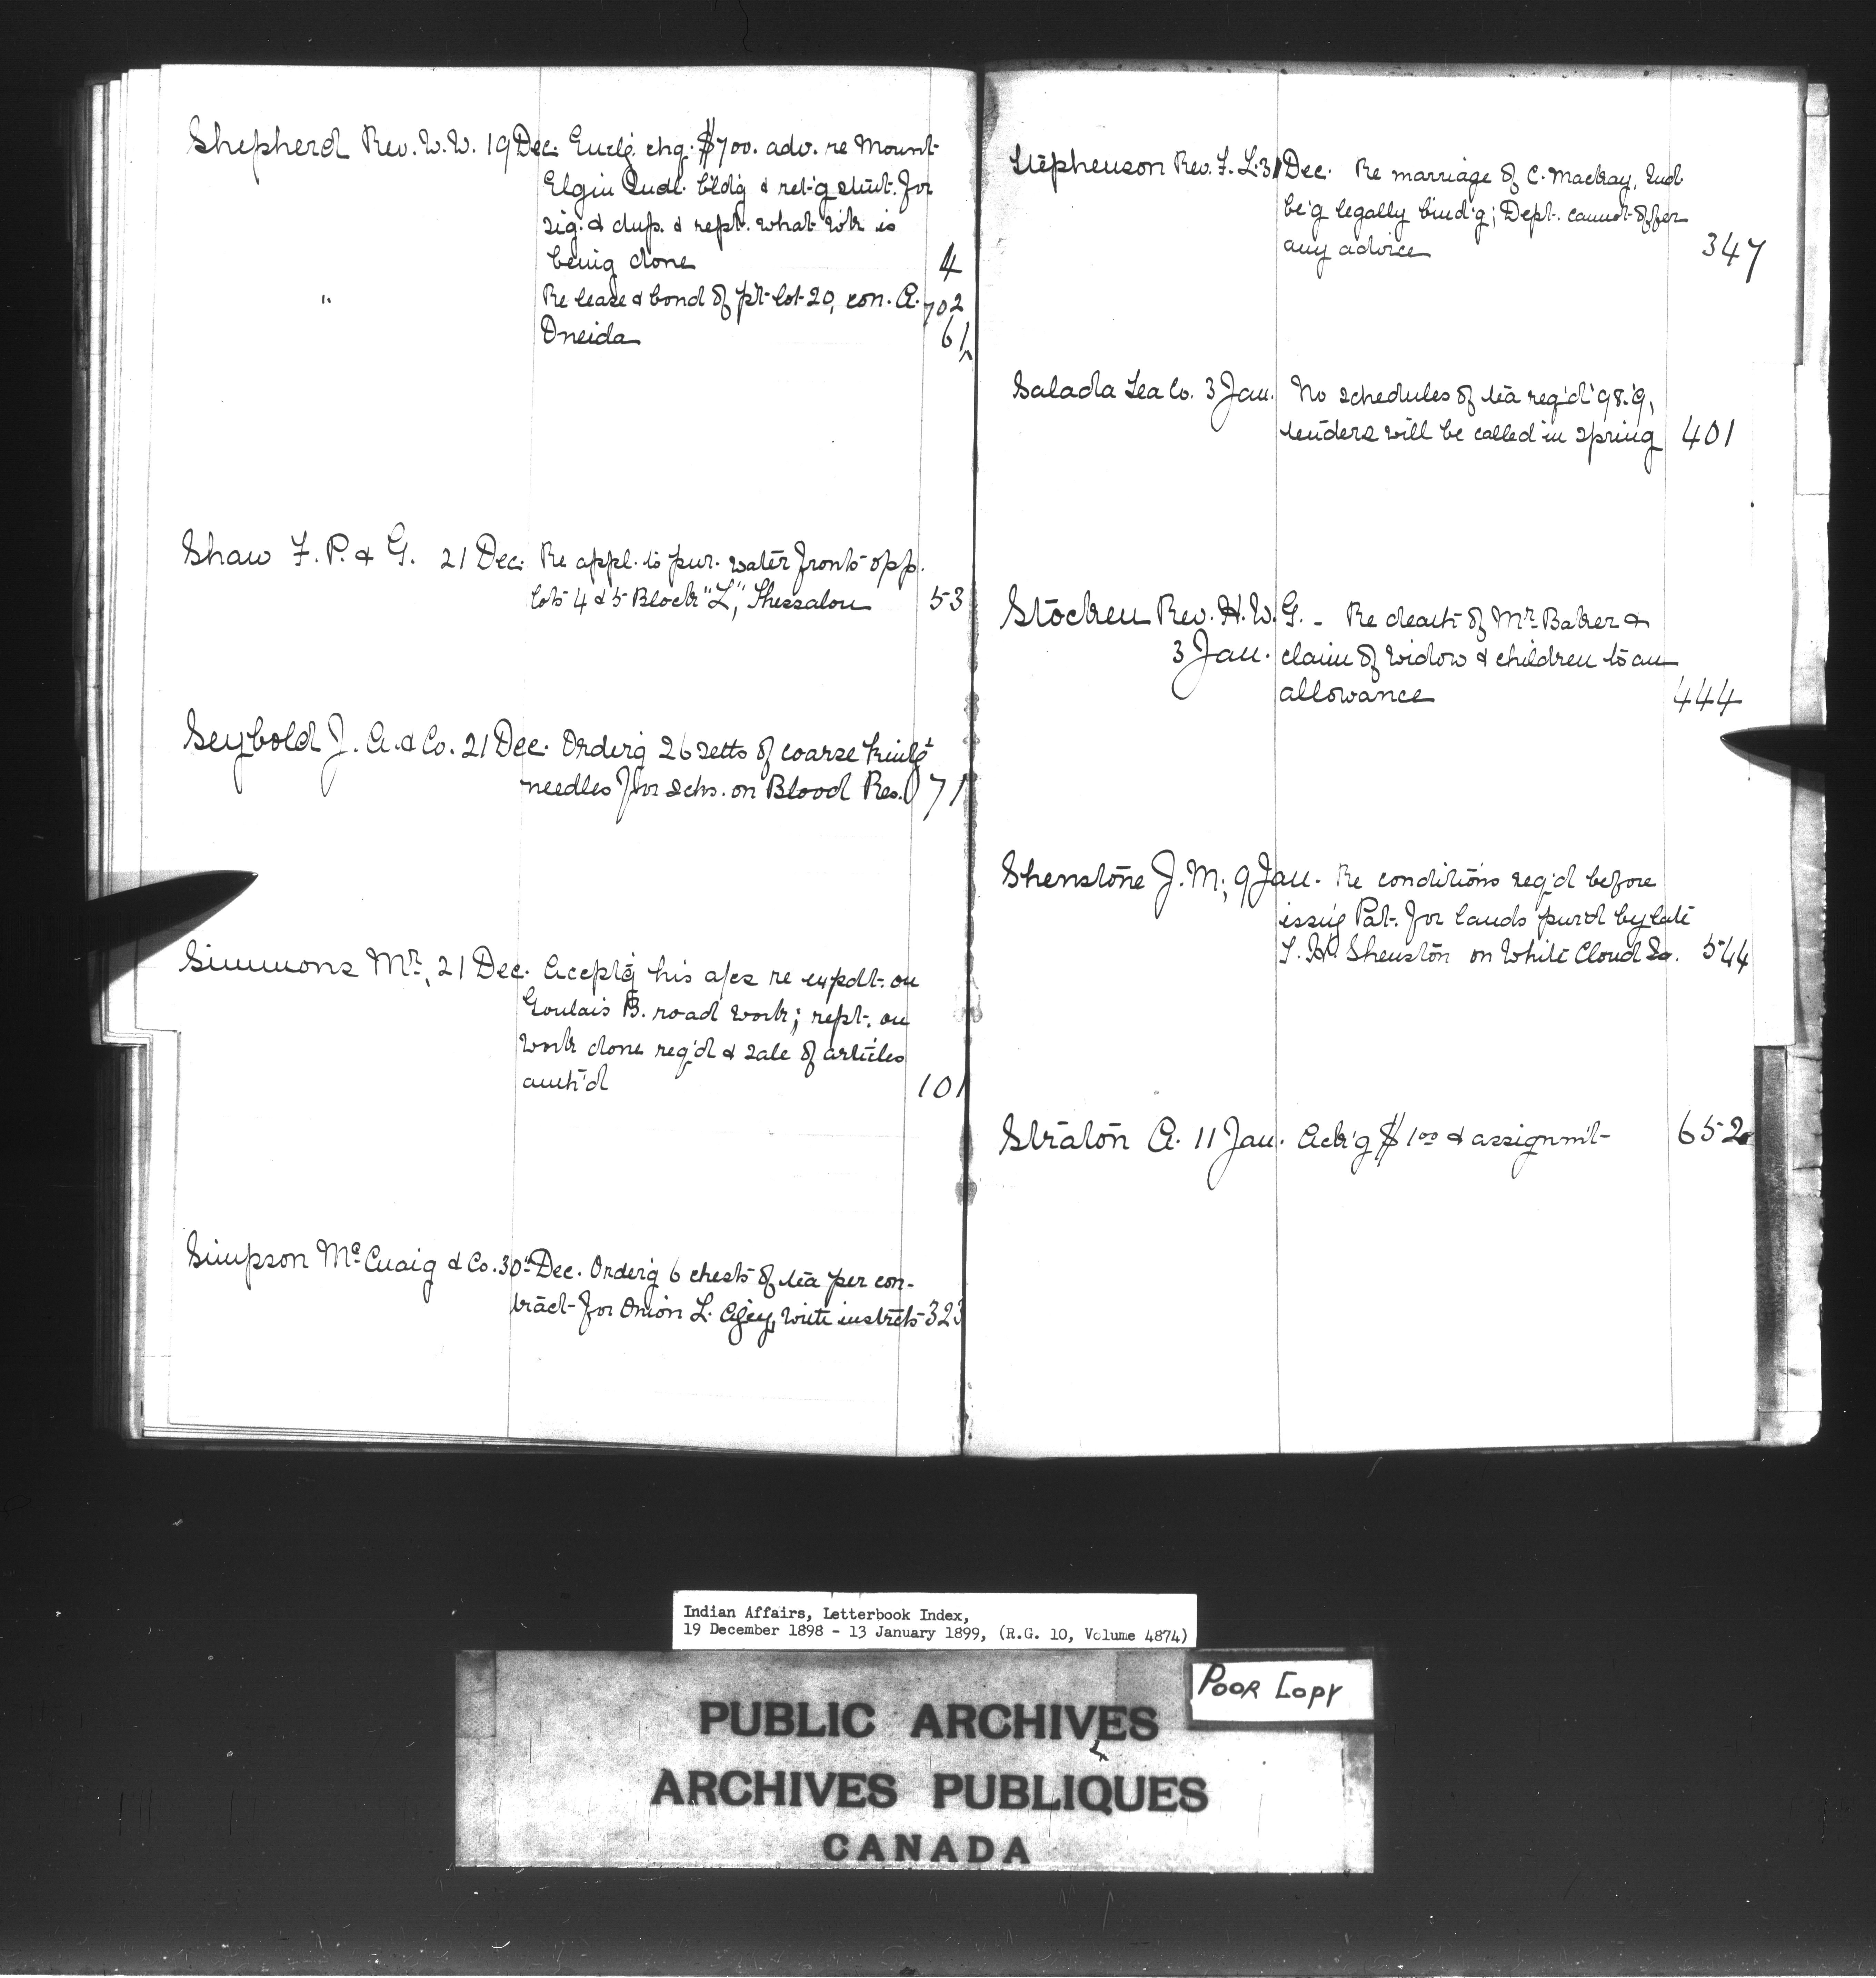 Shepherd Rev. W. W. 19 Dec. Enclg. chq. $700. adv. re Mount
Elgin Indl. bldg & ret'g stmt. for
sig. & dup. & rept. what wk is
being done 4
" Re lease & bond of pt. lot 20, con. A. 702
Oneida 61
Shaw F. P. & G. 21 Dec. Re appl. to pur. water fronts opp.
lots 4 & 5 Block "L", Thessalon 53
Seybold J. A. & Co. 21 Dec. Order'g 26 setts of coarse knitg
needles for schs. on Blood Res. 71
Simmons Mr., 21 Dec. Accept'g his a/cs re expdt. on
Goulais B. road work; rept. on
work done req'd & sale of articles
auth'd 101
Simpson McCuaig & Co. 30 Dec. Order'g 6 chests of tea per con-
tract for Onion L. Agcy, write instrcts 323
Stephenson Rev. F. L. 31 Dec. Re marriage of C. Mackay, Ind.
be'g legally bind'g; Dept. cannot offer
any advice 347
Salada Tea Co. 3 Jan. No schedules of tea req'd '98.'9,
tenders will be called in spring 401
Stocken Rev. H. W. G. - Re death of Mr. Baker &
3 Jan. claim of widow & children to an
allowance 444
Shenstone J. M., 9 Jan. Re conditions req'd before
issu'g Pat. for lands purd by late
T. H. Shenston on White Cloud Is. 544
Straton A. 11 Jan. Ack'g $1.00 & assignm't 652
Indian Affairs, Letterbook Index,
19 December 1898 - 13 January 1899, (R.G. 10, Volume 4874)
Poor Copy
PUBLIC ARCHIVES
ARCHIVES PUBLIQUES
CANADA